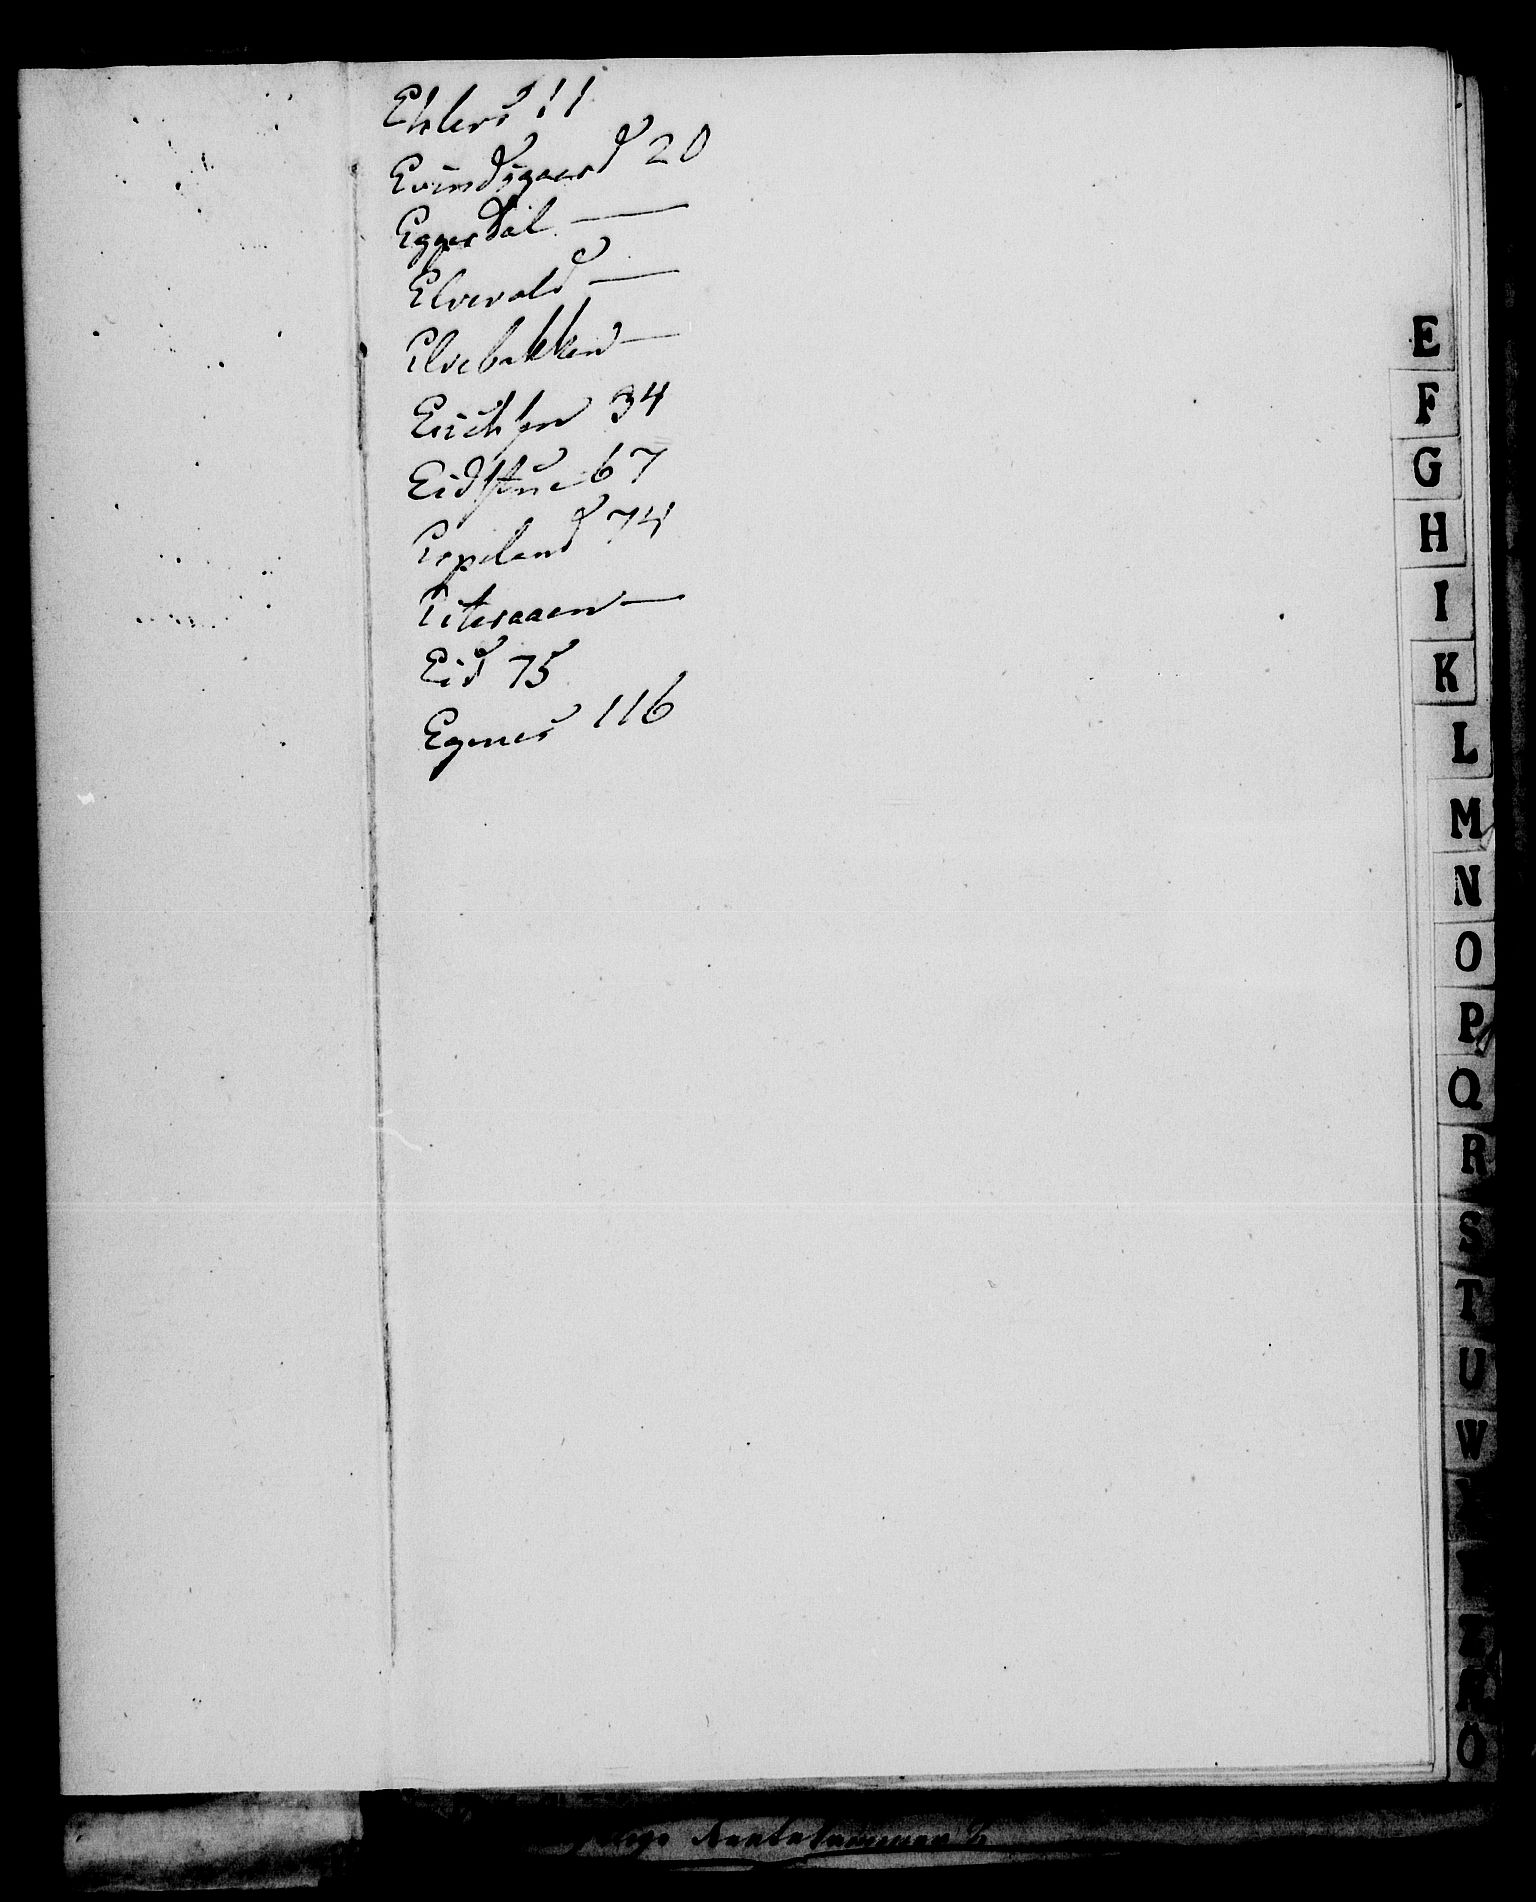 Ehlers 11
Evindsgaard 20
Eggesdal —
Elvevold —
Elvebakken —
Erichsen 34
Eidstue 67
Espeland 74
Eiteraaen —
Eid 75
Egenes 116
E
F
G
H
I
K
L
M
N
O
P
Q
R
S
T
U
W
Ø